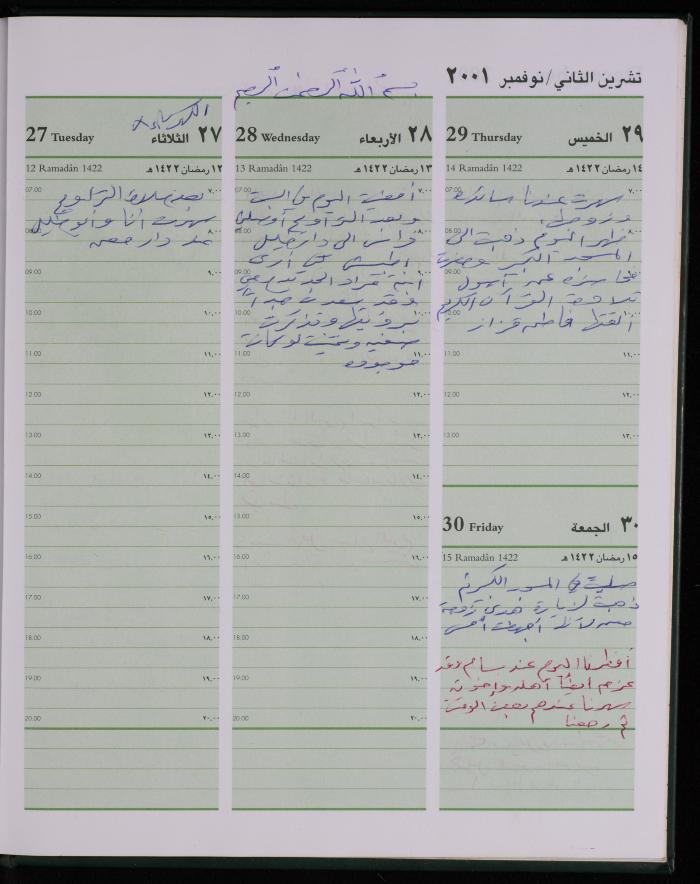 تشرين الثاني/نوفمبر ٢٠٠١
بسم الله الرحمن الرحيم
29 Thursday الخميس ٢٩
14 Ramadân 1422 ١٤ رمضان ١٤٢٢ هـ
سهرت عندنا سائدة
وزوجها
ظهر اليوم ذهبت الى
المسجد الكبير وحضرت
محاضرة عن آداب
تلاوة القرآن الكريم
ألقتها فاطمة قزاز
07.00 ٧,٠٠
08.00 ٨,٠٠
09.00 ٩,٠٠
10.00 ١٠,٠٠
11.00 ١١,٠٠
12.00 ١٢,٠٠
13.00 ١٣,٠٠
30 Friday الجمعة ٣٠
15 Ramadân 1422 ١٥ رمضان ١٤٢٢ هـ
صليت في المسجد الكبير
ذهبت لزيارة زوجة
لأنها أمس
أفطرنا اليوم عند سائد وقد
عزم أيضا أهله وإخوته
سهرنا عندهم بعض الوقت
ثم رجعنا
28 Wednesday الأربعاء ٢٨
13 Ramadân 1422 ١٣ رمضان ١٤٢٢ هـ
أمضيت اليوم في البيت
وبعد التراويح أوصلني
فراس الى دار خليل
لكي أرى
ابنة مراد
وقد سعدت جدا
برؤيتها وتذكرت
وتمنيت لو كانت
موجودة
07.00 ٧,٠٠
08.00 ٨,٠٠
09.00 ٩,٠٠
10.00 ١٠,٠٠
11.00 ١١,٠٠
12.00 ١٢,٠٠
13.00 ١٣,٠٠
14.00 ١٤,٠٠
15.00 ١٥,٠٠
16.00 ١٦,٠٠
17.00 ١٧,٠٠
18.00 ١٨,٠٠
19.00 ١٩,٠٠
20.00 ٢٠,٠٠
الكهرباء
27 Tuesday الثلاثاء ٢٧
12 Ramadân 1422 ١٢ رمضان ١٤٢٢ هـ
بعد صلاة التراويح
سهرت أنا وأبو خليل
عند دار
07.00 ٧,٠٠
08.00 ٨,٠٠
09.00 ٩,٠٠
10.00 ١٠,٠٠
11.00 ١١,٠٠
12.00 ١٢,٠٠
13.00 ١٣,٠٠
14.00 ١٤,٠٠
15.00 ١٥,٠٠
16.00 ١٦,٠٠
17.00 ١٧,٠٠
18.00 ١٨,٠٠
19.00 ١٩,٠٠
20.00 ٢٠,٠٠